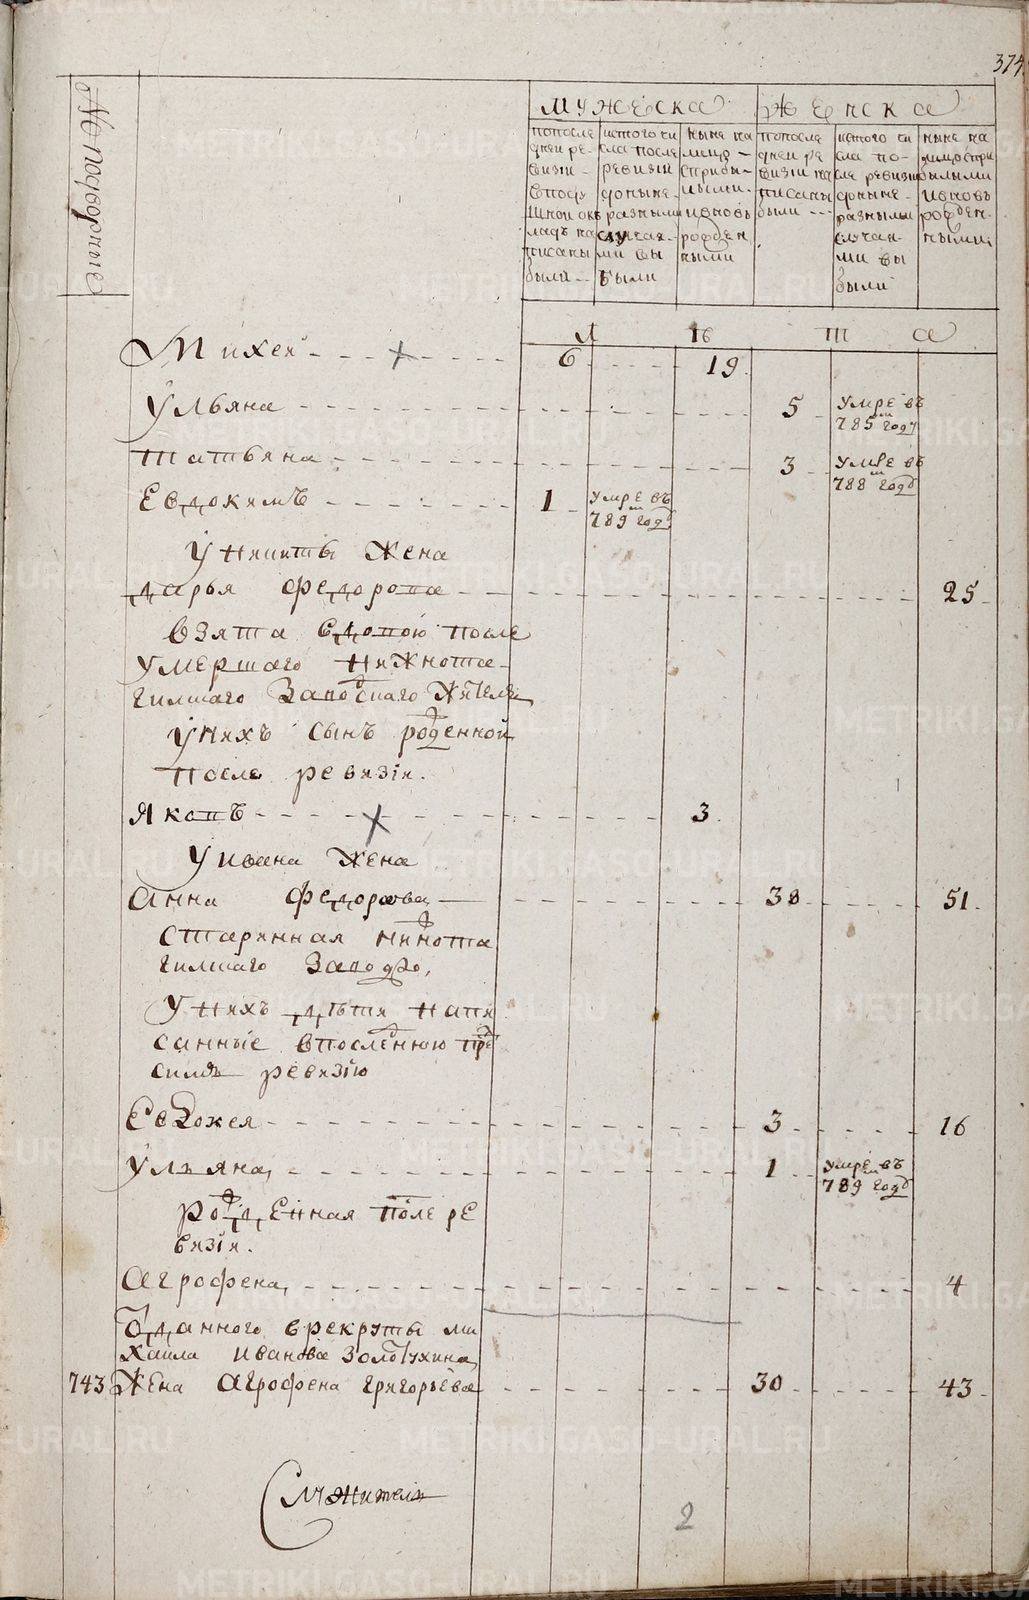 374
№ подворные
мужеска
женска
попосле
дней ре-
визии
вподу
шной окъ
ладъ на
писаны
были
истого чи
сла после
ревизии
доныне
разными
случая-
ми вы
были
ныне на
лицо
сприбы-
лыми
ивновь
рожден
ными
попосле
дней ре
визии на
писаны
были
истого чи
сла по-
сле ревизии
доныне
разными
случая-
ми вы
были
ныне на
лицо спри
былыми
ивновь
рожден-
ными
л ѣ т а
Михея 6 19
Ульяна 5 умре въ
785м году
Татьяна 3 умре въ
788м годѣ
Евдокимъ 1 умре въ
789м годѣ
У Никиты жена
дарья федорова 25
взята вдовою после
умершаго нижнота-
гилшаго заводскаго жителя
У нихъ сынъ рожденной
после ревизіи.
Яковъ 3
У ивана жена
Анна федорова 38 51
старинная нижнота
гилшаго заводу,
У нихъ дѣти напи
санные впоследнюю пред
ревизію
Евдокея 3 16
Ульяна, 1 умре въ
789м годѣ
рожденная после ре
визіи.
Агрофена, 4
Отданного врекруты ми
хаила иванова золотухина
743 Жена Агрофена григорьева 30 43
Служителя
2
METRIKI.GASO-URAL.RU